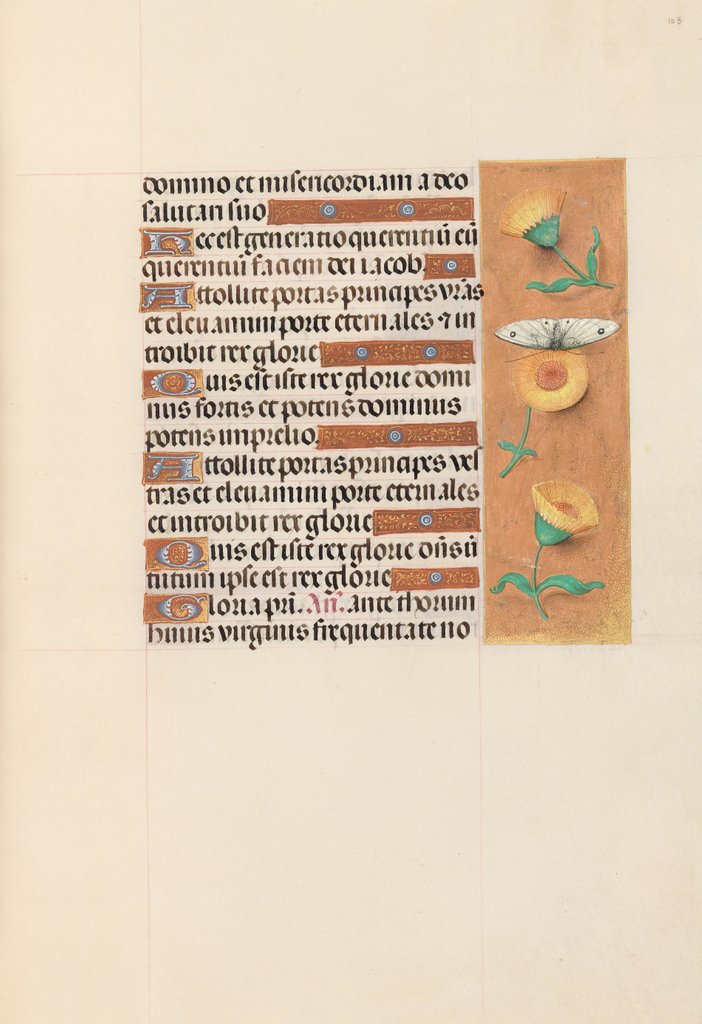 103
domino et misericordiam a deo
salutari suo
Hec est generatio querentiū eū
querentiū faciem dei iacob
Attollite portas principes vrās
et eleuamini porte eternales ⁊ in
troibit rex glorie
Quis est iste rex glorie domi
nus fortis et potens dominus
potens in prelio
Attollite portas principes ves
tras et eleuamini porte eternales
et introibit rex glorie
Quis est iste rex glorie dn̄s ū
tutum ipse est rex glorie
Gloria pr̄i. An̄. ante thorum
huius virginis frequentate no